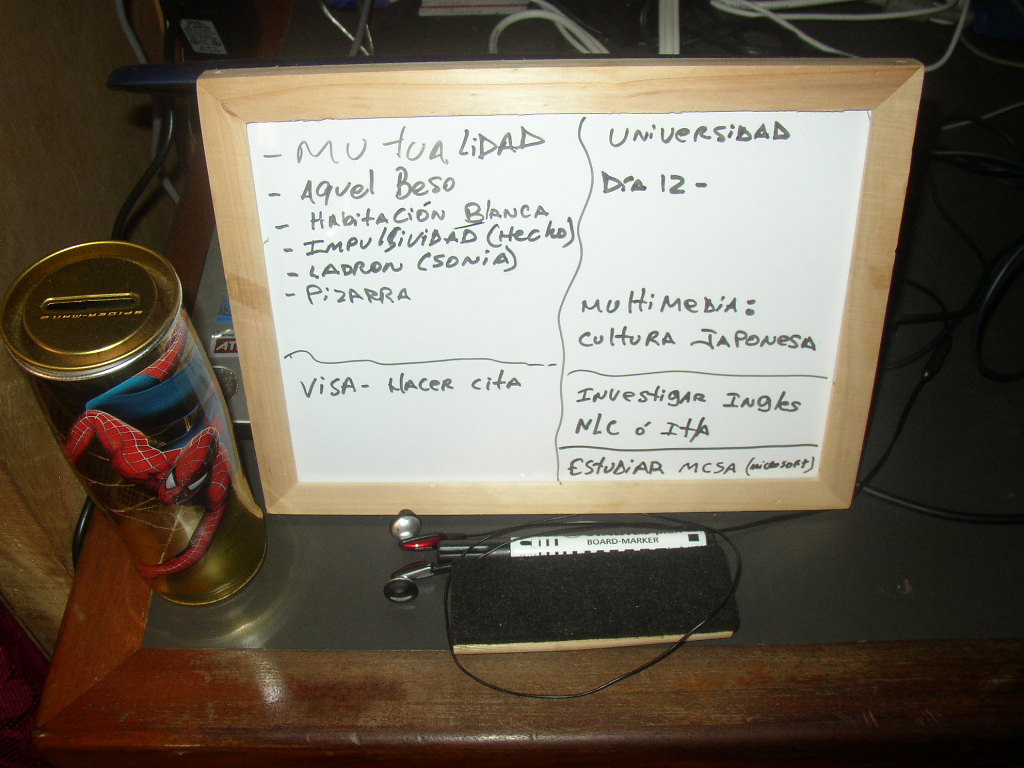 - MUTUALIDAD
- AQUEL BESO
- HABITACIÓN BLANCA
- IMPULSIVIDAD (HECHO)
- LADRON (SONIA)
- PIZARRA
VISA - HACER CITA
UNIVERSIDAD
DíA 12 -
MULTIMEDIA:
CULTURA JAPONESA
INVESTIGAR INGLES
NLC ó ITA
ESTUDIAR MCSA (MICROSOFT)
SPIDER-MAN 2
BOARD-MARKER